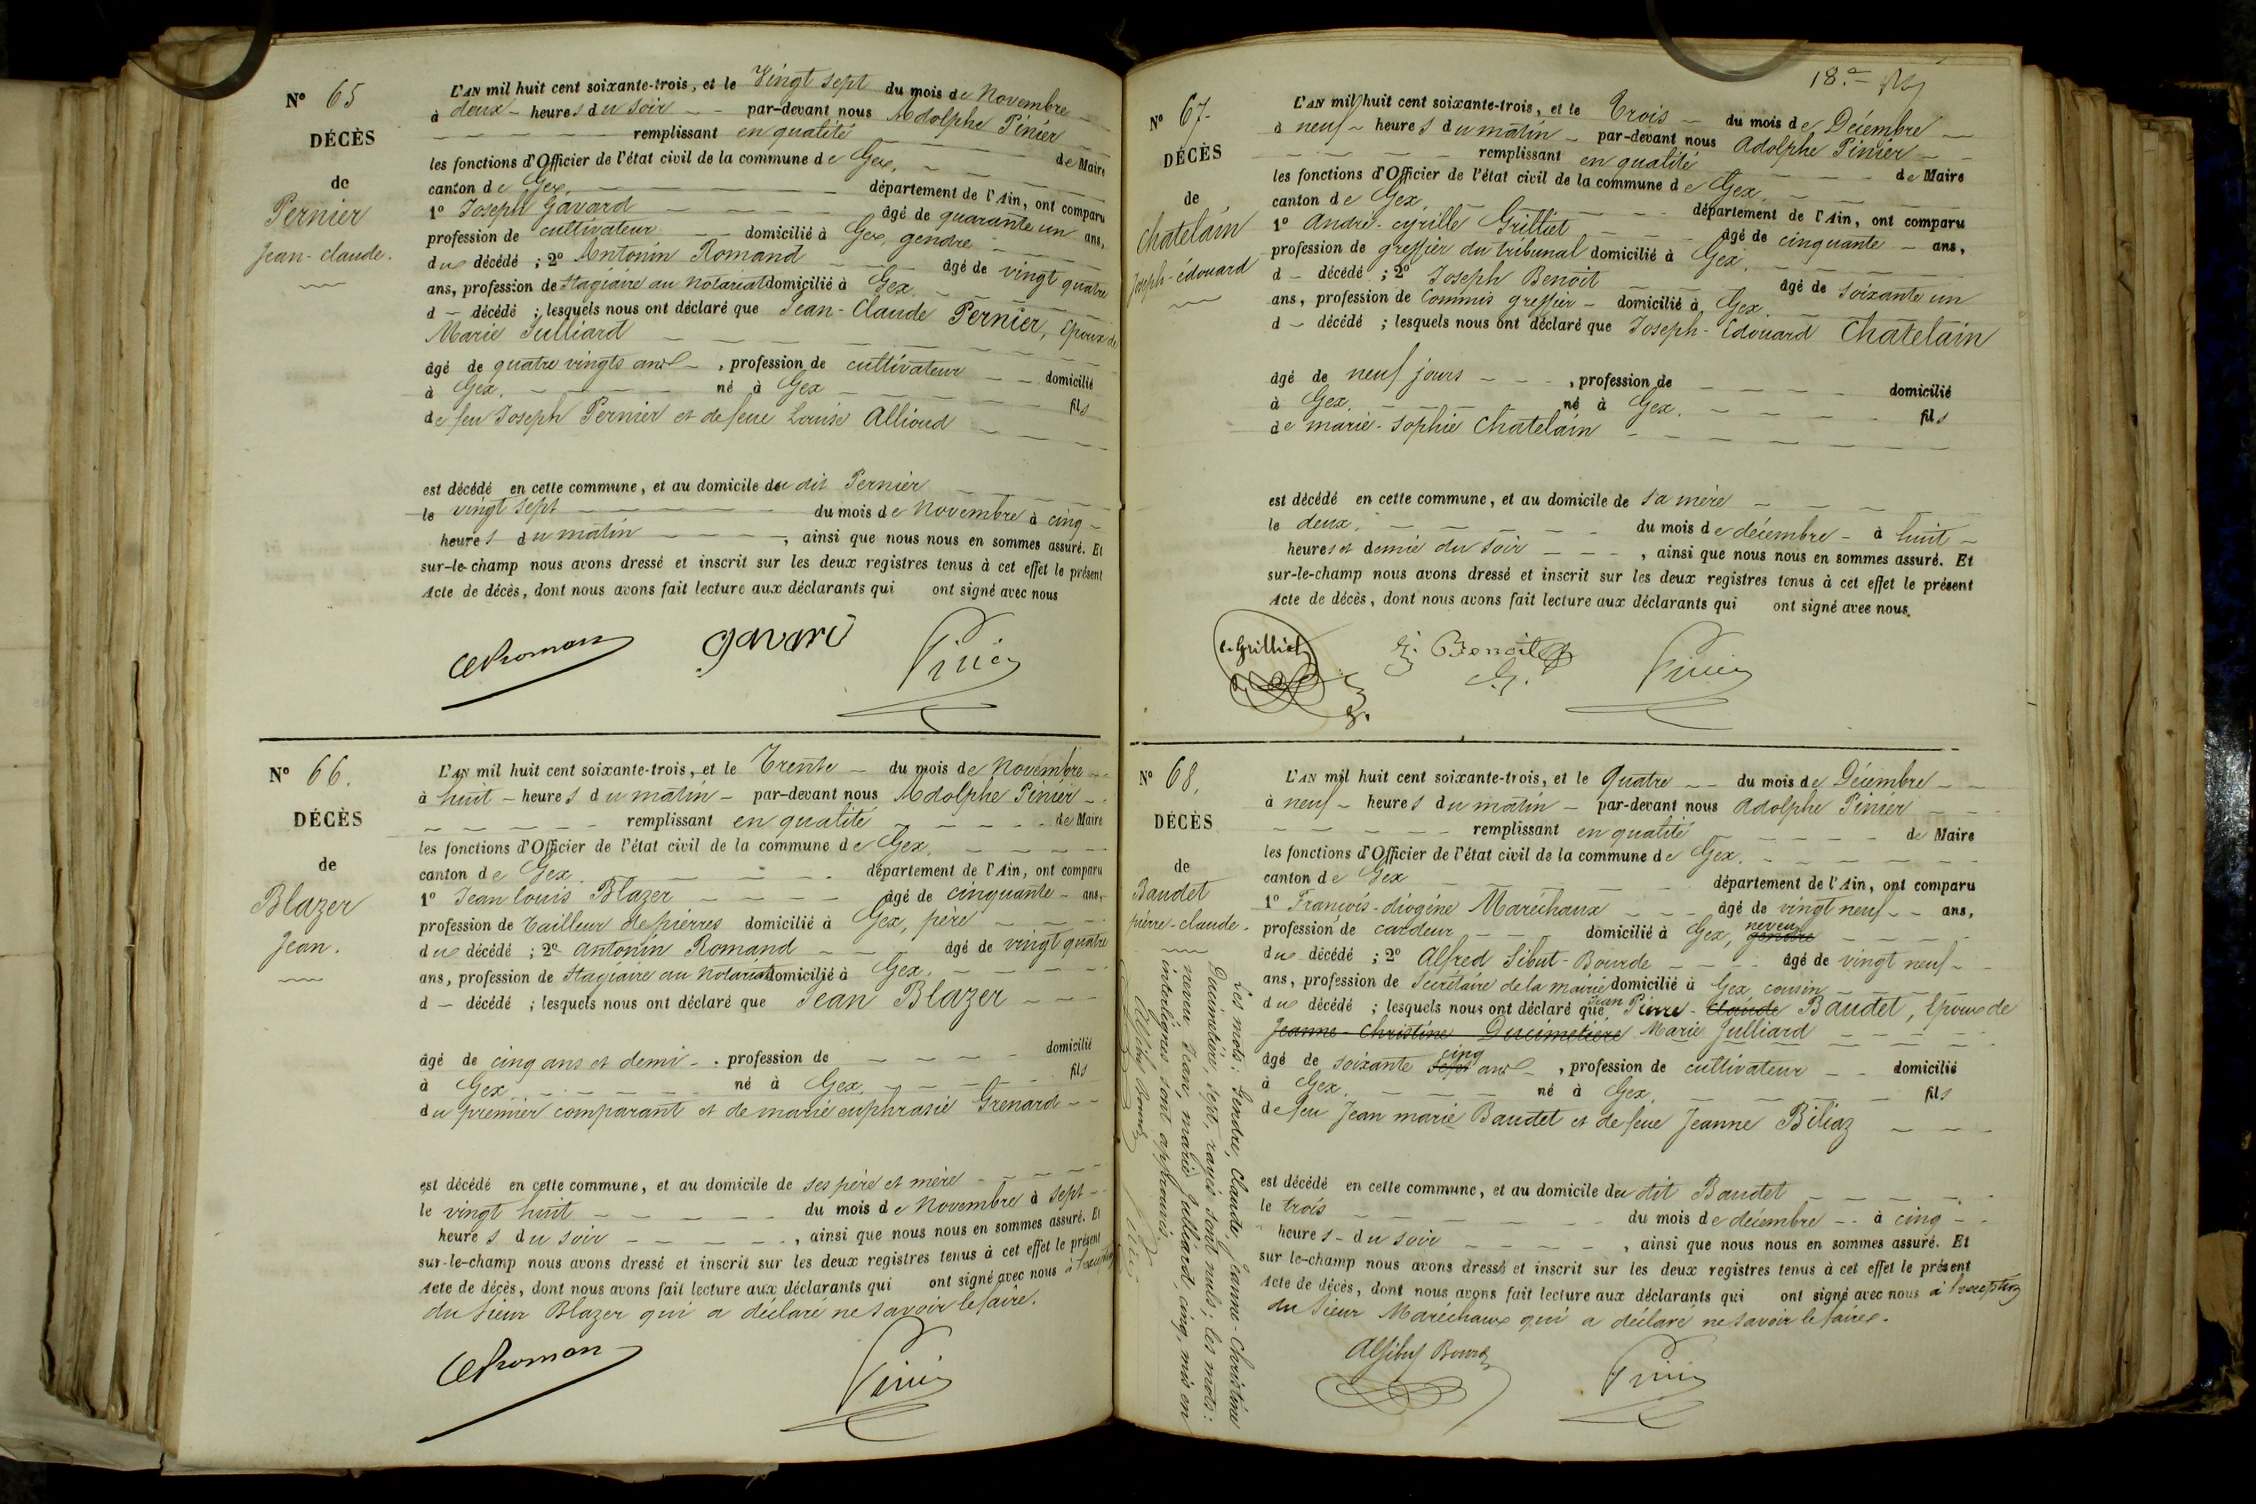 N° 65
DÉCÈS
de
Pernier
Jean-claude.
L'AN mil huit cent soixante-trois, et le Vingt sept du mois de Novembre
à deux heures du soir par-devant nous Adolphe Pinier
remplissant en qualité de Maire
les fonctions d'Officier de l'état civil de la commune de Gex,
canton de Gex, département de l'Ain, ont comparu
1° Joseph Gavard âgé de quarante un ans,
profession de cultivateur domicilié à Gex, gendre
du décédé ; 2° Antonin Romand âgé de vingt quatre
ans, profession de Stagiaire au Notariat domicilié à Gex
d décédé ; lesquels nous ont déclaré que Jean-Claude Pernier, Epoux de
Marie Julliard
âgé de quatre vingts ans , profession de cultivateur domicilié
à Gex. né à Gex fils
de feu Joseph Pernier et de feue Louise Allioud
est décédé en cette commune, et au domicile du dit Pernier
le vingt sept du mois de Novembre à cinq
heures du matin , ainsi que nous nous en sommes assuré. Et
sur-le-champ nous avons dressé et inscrit sur les deux registres tenus à cet effet le présent
Acte de décès, dont nous avons fait lecture aux déclarants qui ont signé avec nous
Gavard Pinier
N° 66.
DÉCÈS
de
Blazer
Jean.
L'AN mil huit cent soixante-trois, et le Trente du mois de Novembre
à huit heures du matin par-devant nous Adolphe Pinier
remplissant en qualité de Maire
les fonctions d'Officier de l'état civil de la commune de Gex.
canton de Gex. département de l'Ain, ont comparu
1° Jean louis Blazer âgé de cinquante ans,
profession de Tailleur de pierres domicilié à Gex, père
du décédé ; 2° Antonin Romand âgé de vingt quatre
ans, profession de Stagiaire au Notariat domicilié à Gex.
d décédé ; lesquels nous ont déclaré que Jean Blazer
âgé de cinq ans et demi . profession de domicilié
à Gex né à Gex, fils
du premier comparant et de marie euphrasie Grenard
est décédé en cette commune, et au domicile de ses père et mère
le vingt huit du mois de Novembre à sept
heures du soir , ainsi que nous nous en sommes assuré. Et
sur-le-champ nous avons dressé et inscrit sur les deux registres tenus à cet effet le présent
Acte de décès, dont nous avons fait lecture aux déclarants qui ont signé avec nous à l'exception
du sieur Blazer qui a déclaré ne savoir le faire.
Pinier
18e
N° 67
DÉCÈS
de
Chatelain
Joseph-édouard
L'AN mil huit cent soixante-trois, et le Trois du mois de Décembre
à neuf heures du matin par-devant nous Adolphe Pinier
remplissant en qualité de Maire
les fonctions d'Officier de l'état civil de la commune de Gex,
canton de Gex, département de l'Ain, ont comparu
1° André-cyrille Grilliet âgé de cinquante ans,
profession de greffier du tribunal domicilié à Gex.
d décédé ; 2° Joseph Benoit âgé de soixante un
ans, profession de Commis greffier domicilié à Gex
d décédé ; lesquels nous ont déclaré que Joseph-Edouard Chatelain
âgé de neuf jours , profession de domicilié
à Gex. né à Gex. fils
de marie-sophie Chatelain
est décédé en cette commune, et au domicile de sa mère
le deux, du mois de décembre à huit
heures et demie du soir , ainsi que nous nous en sommes assuré. Et
sur-le-champ nous avons dressé et inscrit sur les deux registres tenus à cet effet le présent
Acte de décès, dont nous avons fait lecture aux déclarants qui ont signé avec nous.
c. Grilliet J. Benoit Pinier
N° 68.
DÉCÈS
de
Baudet
pierre-claude.
L'AN mil huit cent soixante-trois, et le Quatre du mois de Décembre
à neuf heures du matin par-devant nous Adolphe Pinier
remplissant en qualité de Maire
les fonctions d'Officier de l'état civil de la commune de Gex.
canton de Gex département de l'Ain, ont comparu
1° François-diogène Maréchaux âgé de vingt neuf ans,
profession de cardeur domicilié à Gex, gendre neveu
du décédé ; 2° Alfred Sibut-Bourde âgé de vingt neuf
ans, profession de Secrétaire de la mairie domicilié à Gex, cousin
du décédé ; lesquels nous ont déclaré que Jean Pierre-Claude Baudet, Epoux de
Jeanne-Christine Ducimetière Marie Julliard
âgé de soixante sept cinq ans , profession de cultivateur domicilié
à Gex né à Gex fils
de feu Jean marie Baudet et de feue Jeanne Biliaz
est décédé en cette commune, et au domicile du dit Baudet
le trois du mois de décembre à cinq
heures du soir , ainsi que nous nous en sommes assuré. Et
sur le-champ nous avons dressé et inscrit sur les deux registres tenus à cet effet le présent
Acte de décès, dont nous avons fait lecture aux déclarants qui ont signé avec nous à l'exception
du sieur Maréchaux qui a déclaré ne savoir le faire.
Asibut Bourde Pinier
Les mots: Gendre, Claude, Jeanne-Christine
Ducimetière, sept, rayés sont nuls; les mots:
neveu Jean, marie Julliard, cinq, mis en
interlignes sont approuvés.
Asibut Bourde Pinier